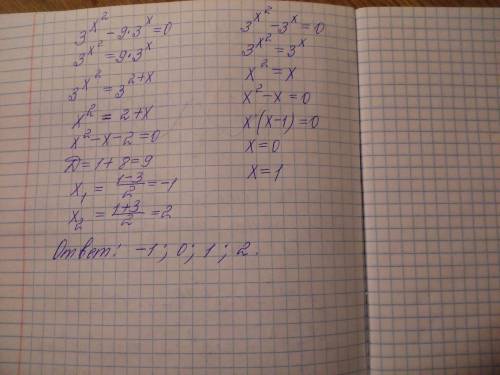 3^{x^2} - 9·3^x = 0
3^{x^2} = 9·3^x
3^{x^2} = 3^{2+x}
x^2 = 2+x
x^2 - x - 2 = 0
D = 1 + 8 = 9
x_1 = \frac{1-3}{2} = -1
x_2 = \frac{1+3}{2} = 2
3^{x^2} - 3^x = 0
3^{x^2} = 3^x
x^2 = x
x^2 - x = 0
x(x-1) = 0
x = 0
x = 1
Ответ: -1; 0; 1; 2.